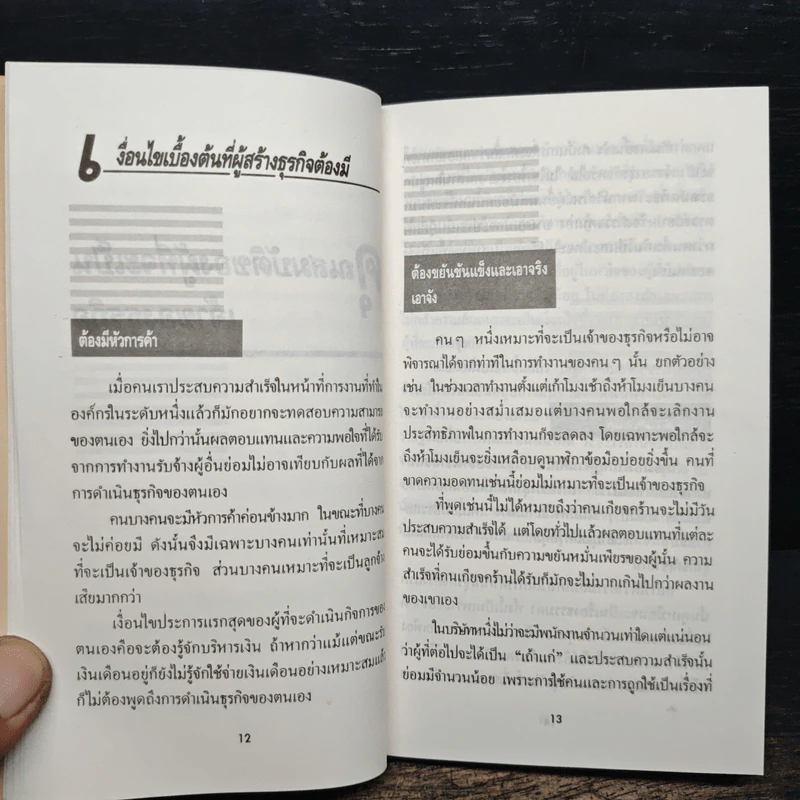 เงื่อนไขเบื้องต้นที่ผู้สร้างธุรกิจต้องมี
ต้องมีหัวการค้า
เมื่อคนเราประสบความสำเร็จในหน้าที่การงานที่ทำใน
องค์กรในระดับหนึ่งแล้วก็มักอยากจะทดสอบความสามารถ
ของตนเอง ยิ่งไปกว่านั้นผลตอบแทนและความพอใจที่ได้รับ
จากการทำงานรับจ้างผู้อื่นย่อมไม่อาจเทียบกับผลที่ได้จาก
การดำเนินธุรกิจของตนเอง
คนบางคนจะมีหัวการค้าค่อนข้างมาก ในขณะที่บางคน
จะไม่ค่อยมี ดังนั้นจึงมีเฉพาะบางคนเท่านั้นที่เหมาะสม
ที่จะเป็นเจ้าของธุรกิจ ส่วนบางคนเหมาะที่จะเป็นลูกจ้าง
เสียมากกว่า
เงื่อนไขประการแรกสุดของผู้ที่จะดำเนินกิจการของ
ตนเองคือจะต้องรู้จักบริหารเงิน ถ้าหากว่าแม้แต่ขณะรับ
เงินเดือนอยู่ก็ยังไม่รู้จักใช้จ่ายเงินเดือนอย่างเหมาะสมแล้ว
ก็ไม่ต้องพูดถึงการดำเนินธุรกิจของตนเอง
12
ต้องขยันขันแข็งและเอาจริง
เอาจัง
คน ๆ หนึ่งเหมาะที่จะเป็นเจ้าของธุรกิจหรือไม่อาจ
พิจารณาได้จากท่าทีในการทำงานของคน ๆ นั้น ยกตัวอย่าง
เช่น ในช่วงเวลาทำงานตั้งแต่เก้าโมงเช้าถึงห้าโมงเย็นบางคน
จะทำงานอย่างสม่ำเสมอแต่บางคนพอใกล้จะเลิกงาน
ประสิทธิภาพในการทำงานก็จะลดลง โดยเฉพาะพอใกล้จะ
ถึงห้าโมงเย็นจะยิ่งเหลือบดูนาฬิกาข้อมือบ่อยยิ่งขึ้น คนที่
ขาดความอดทนเช่นนี้ย่อมไม่เหมาะที่จะเป็นเจ้าของธุรกิจ
ที่พูดเช่นนี้ไม่ได้หมายถึงว่าคนเกียจคร้านจะไม่มีวัน
ประสบความสำเร็จได้ แต่โดยทั่วไปแล้วผลตอบแทนที่แต่ละ
คนจะได้รับย่อมขึ้นกับความขยันหมั่นเพียรของผู้นั้น ความ
สำเร็จที่คนเกียจคร้านได้รับก็มักจะไม่มากเกินไปกว่าผลงาน
ของเขาเอง
ในบริษัทหนึ่งไม่ว่าจะมีพนักงานจำนวนเท่าใดแต่แน่นอน
ว่าผู้ที่ต่อไปจะได้เป็น “เถ้าแก่” และประสบความสำเร็จนั้น
ย่อมมีจำนวนน้อย เพราะการใช้คนและการถูกใช้เป็นเรื่องที่
13